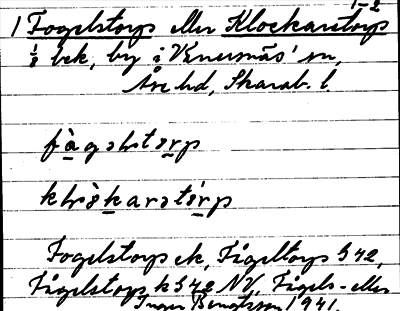 1-2
1 Fogelstorp eller Klockaretorp
1/8 bek, by i Venersnäs' sn,
Åse hd, Skarab. l.
fågəlstɵrp
klɵ̀karətɵ́rp
Fogelstorp ek, Fågeltorp 542,
Fågelstorp k 542 NV, Fågels- eller
Inger Bengtsson 1941.